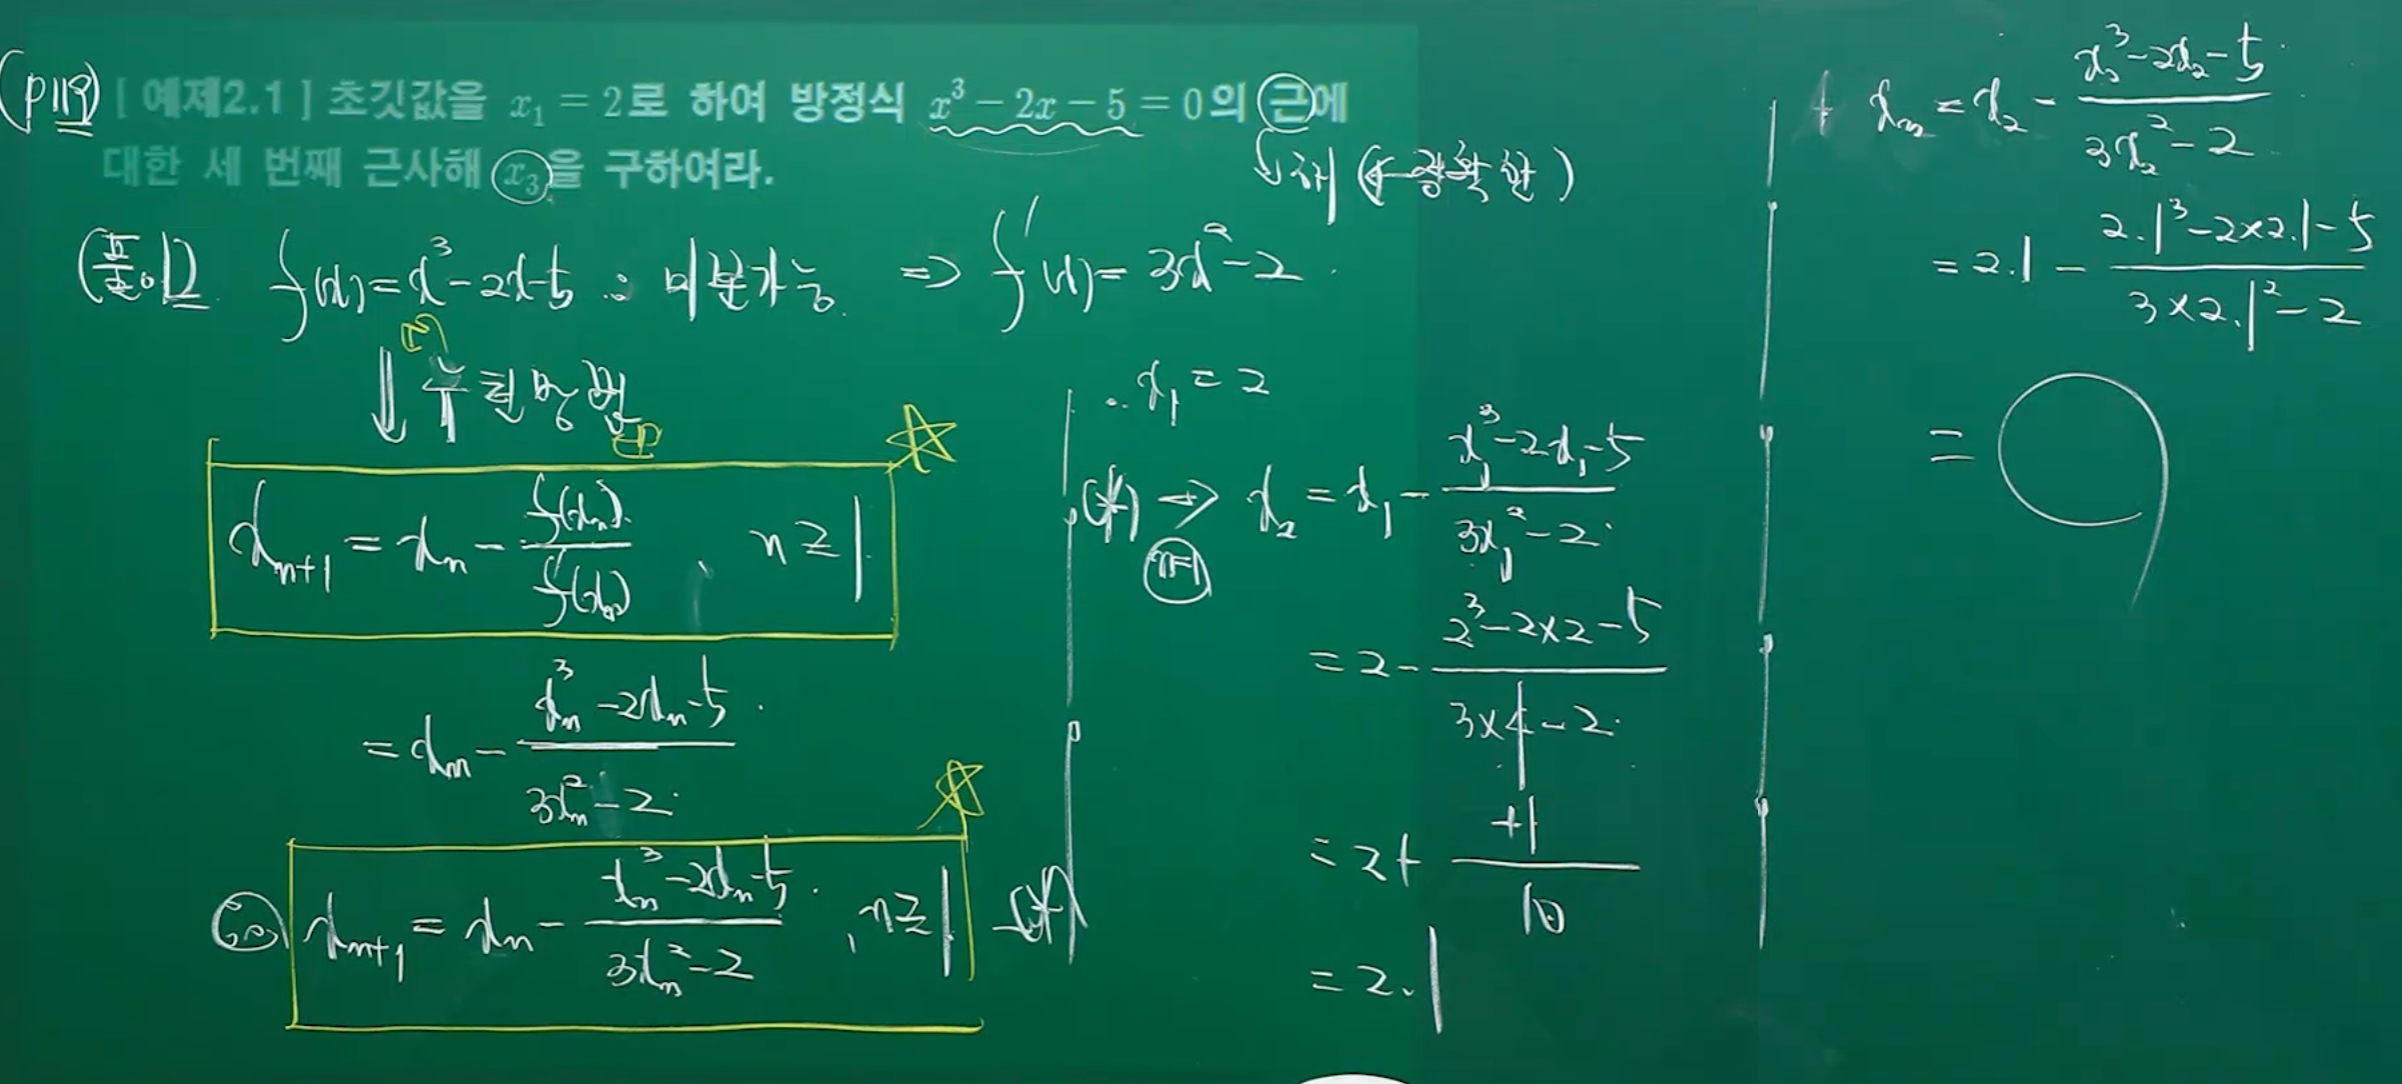 (p119) [ 예제2.1 ] 초깃값을 x₁ = 2로 하여 방정식 x³ − 2x − 5 = 0의 근에
대한 세 번째 근사해 x₃을 구하여라.
↓해 (정확한)
(풀이) f(x) = x³ - 2x - 5 : 미분가능 ⇒ f'(x) = 3x² - 2
⇓ 뉴턴방법
xₙ₊₁ = xₙ - f(xₙ)/f'(xₙ), n ≥ 1
= xₙ - (xₙ³ - 2xₙ - 5)/(3xₙ² - 2)
xₙ₊₁ = xₙ - (xₙ³ - 2xₙ - 5)/(3xₙ² - 2), n ≥ 1 -(*)
x₁ = 2
(*) ⇒ x₂ = x₁ - (x₁³ - 2x₁ - 5)/(3x₁² - 2)
n=1
= 2 - (2³ - 2×2 - 5)/(3×4 - 2)
= 2 + (+1)/10
= 2.1
x₃ = x₂ - (x₂³ - 2x₂ - 5)/(3x₂² - 2)
= 2.1 - (2.1³ - 2×2.1 - 5)/(3×2.1² - 2)
=